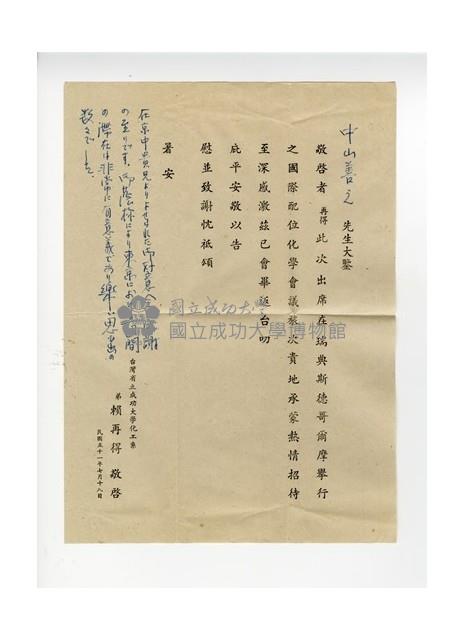 中山善之 先生大鑒
敬啓者 再得 此次出席在瑞典斯德哥爾摩舉行
之國際配位化學會議旅次貴地承蒙熱情招待
至深感激茲已會畢返台叨
庇平安敬以告
慰並致謝忱祗頌
署安
台灣省立成功大學化工系
弟 賴再得 敬啓
民國五十一年七月十八日
在京中貴兄よりよせられた御好意
の至りです。御蔭様により東京における
の滞在は非常に有意義であり楽しい思出の
数々でした。
國立成功大學
國立成功大學博物館